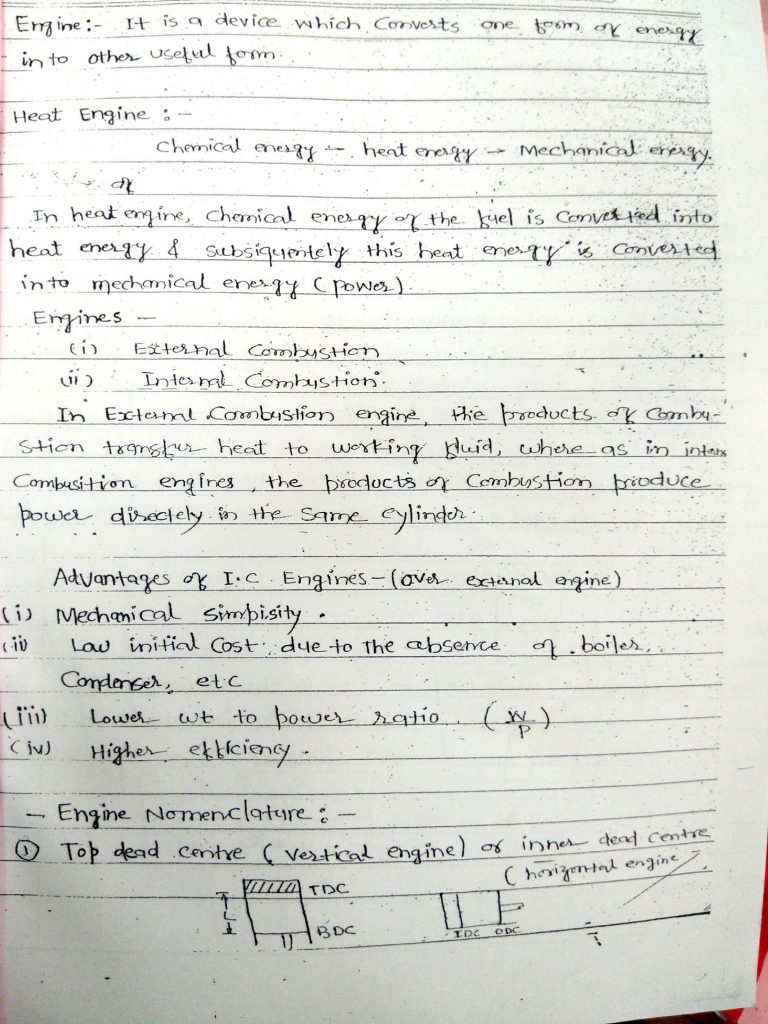 Engine:- It is a device which converts one form of energy
in to other useful form.
Heat Engine :-
Chemical energy → heat energy → Mechanical energy.
or
In heat engine, chemical energy of the fuel is converted into
heat energy & subsiquentely this heat energy is converted
in to mechanical energy (power).
Engines —
(i) External Combustion
(ii) Internal Combustion.
In External Combustion engine, the products of Combu-
stion transfur heat to working fluid, where as in intern
Combusition engines, the products of Combustion produce
power directely in the same cylinder.
Advantages of I.C. Engines - (over external engine)
(i) Mechanical simpisity.
(ii) Law initial Cost, due to the absence of boiler,
Condenser, etc
(iii) Lower wt to power ratio. (W/P)
(iv) Higher efficiency.
— Engine Nomenclature : —
① Top dead centre (vertical engine) or inner dead centre
(horizontal engine).
TDC
L
BDC
IDC ODC